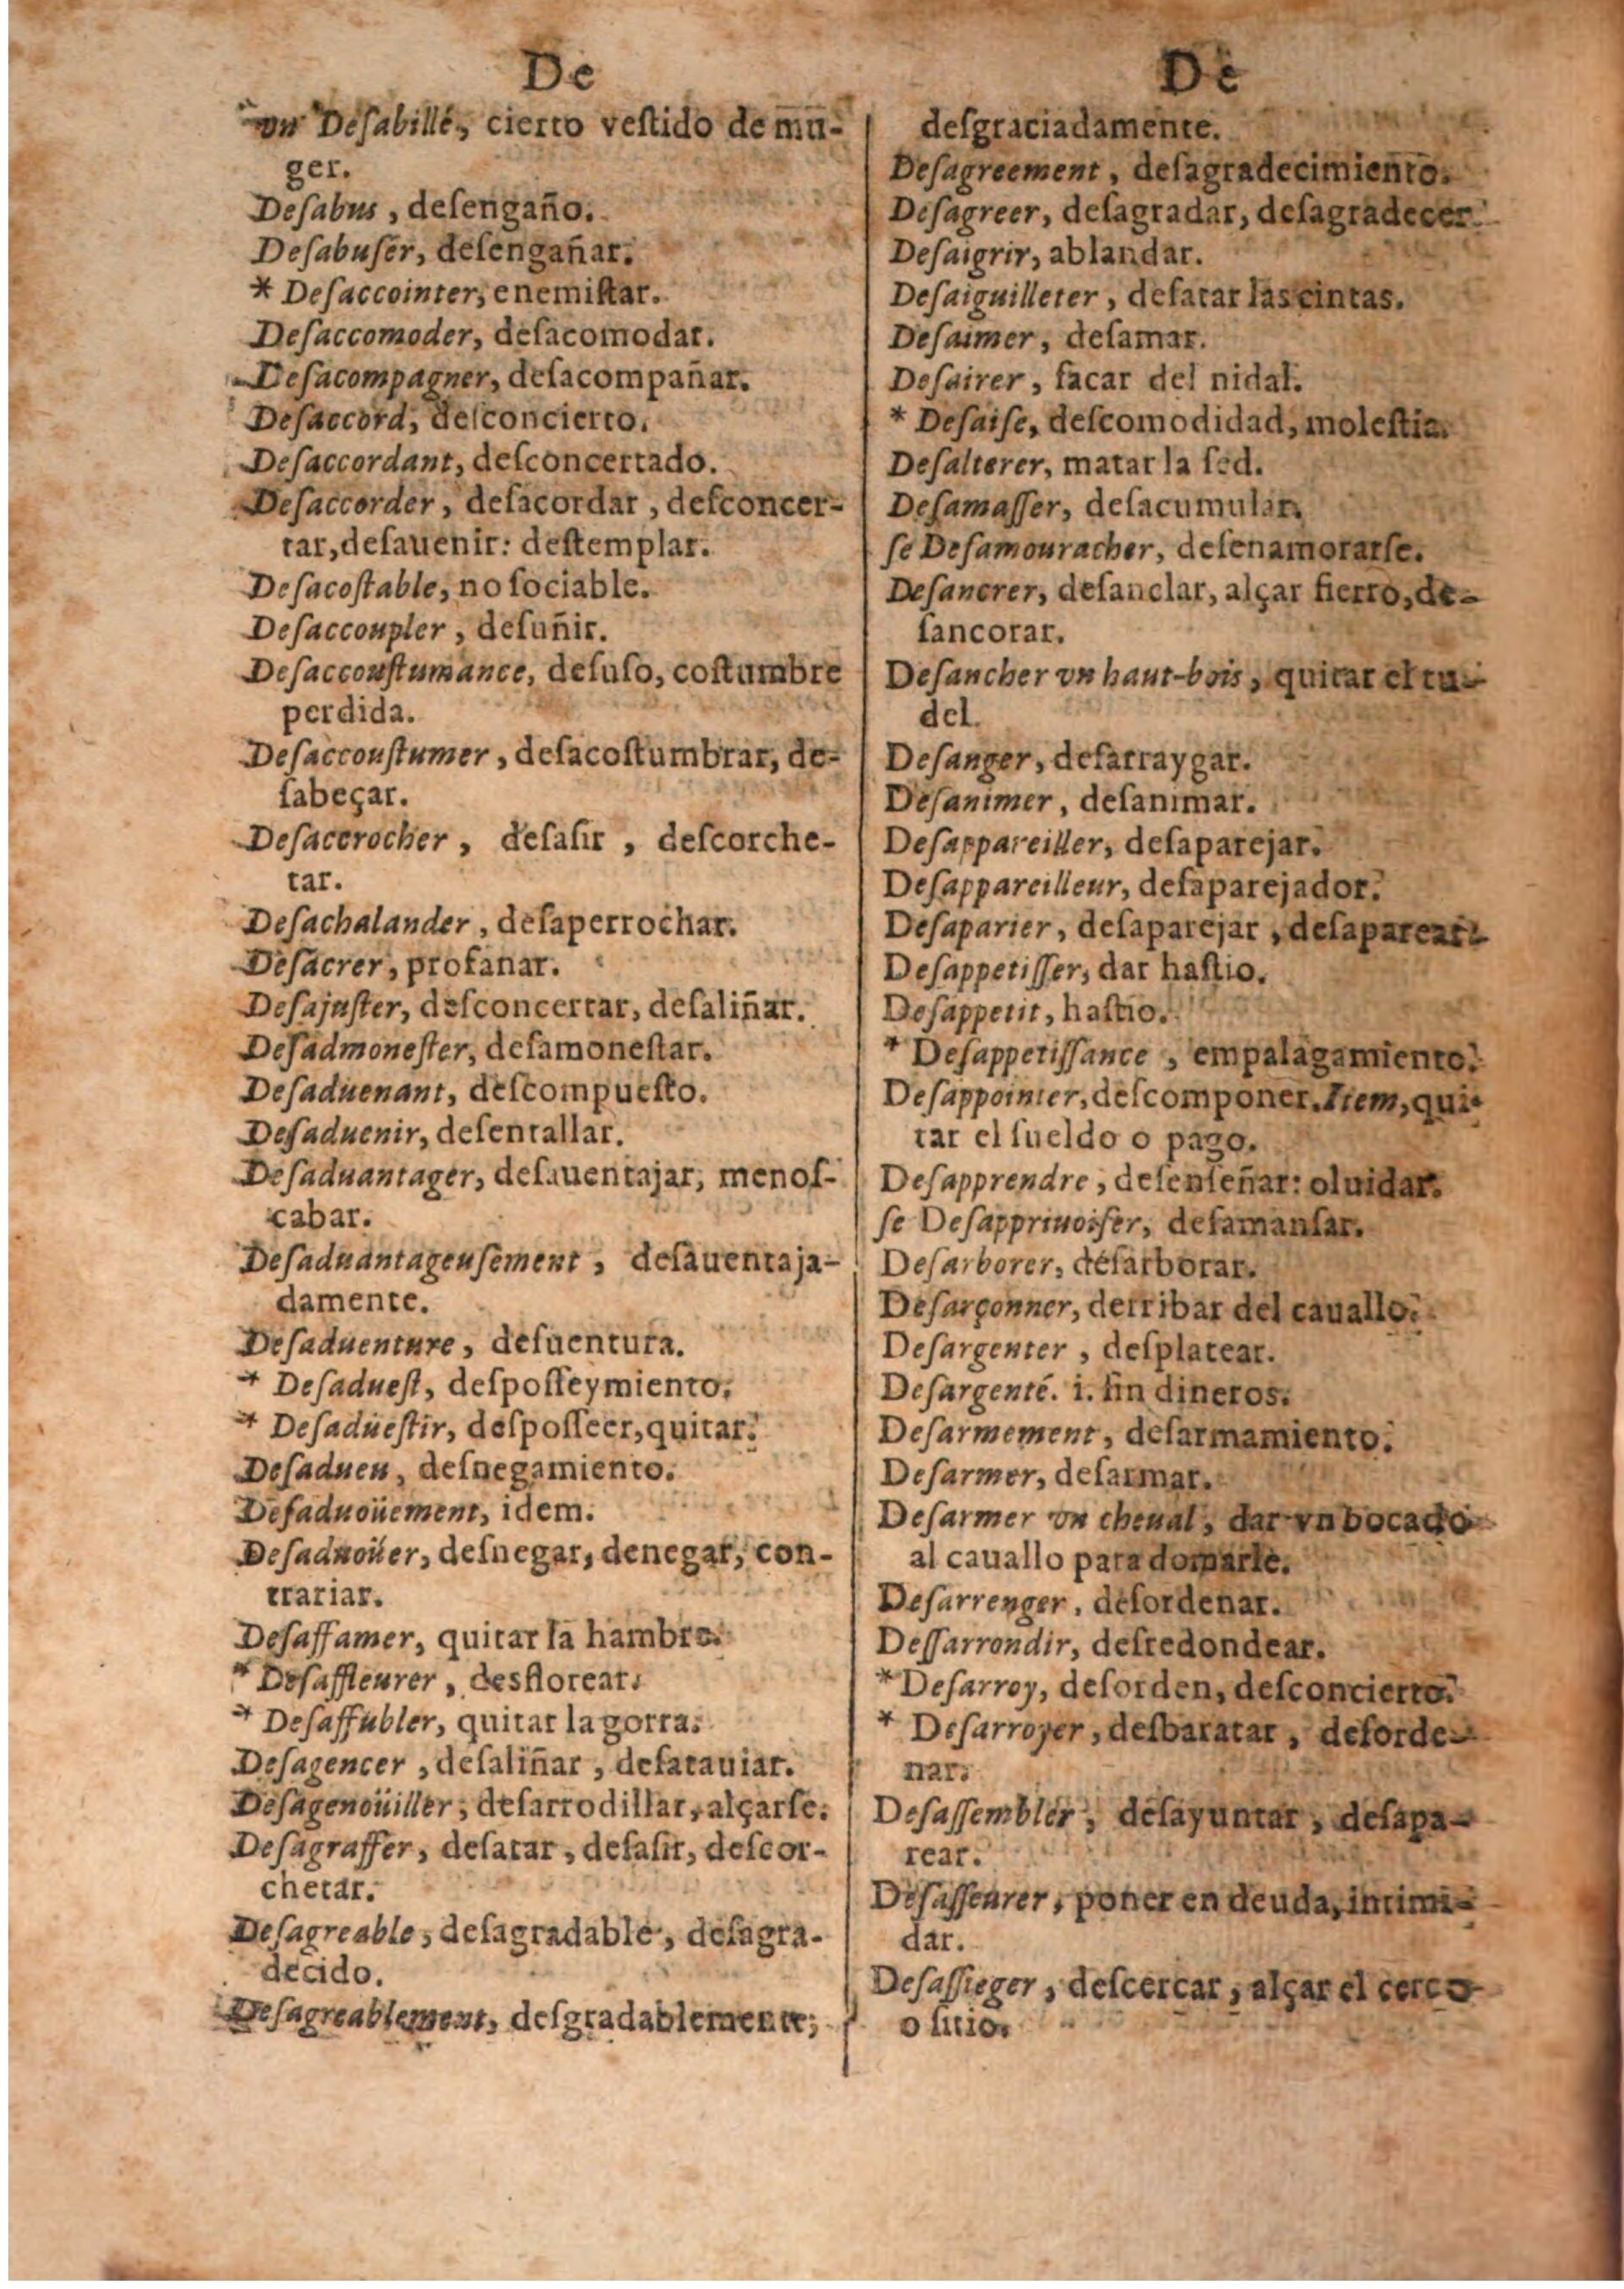 De
vn Deſabillé, cierto veſtido de mu-
ger.
Deſabus, deſengaño.
Deſabuſer, deſengañar.
* Deſaccointer, enemiſtar.
Deſaccomoder, deſacomodar.
Deſacompagner, deſacompañar.
Deſaccord, deſconcierto.
Deſaccordant, deſconcertado.
Deſaccorder, deſacordar, deſconcer-
tar, deſauenir: deſtemplar.
Deſacoſtable, no ſociable.
Deſaccoupler, deſuñir.
Deſaccouſtumance, deſuſo, coſtumbre
perdida.
Deſaccouſtumer, deſacoſtumbrar, de-
ſabeçar.
Deſaccrocher, deſaſir, deſcorche-
tar.
Deſachalander, deſaperrochar.
Deſacrer, profanar.
Deſajuſter, deſconcertar, deſaliñar.
Deſadmoneſter, deſamoneſtar.
Deſaduenant, deſcompueſto.
Deſaduenir, deſentallar.
Deſaduantager, deſauentajar, menoſ-
cabar.
Deſaduantageuſement, deſauentaja-
damente.
Deſaduenture, deſuentura.
* Deſadueſt, deſpoſſeymiento.
* Deſadueſtir, deſpoſſeer, quitar.
Deſadueu, deſnegamiento.
Deſaduoüement, idem.
Deſaduoüer, deſnegar, denegar, con-
trariar.
Deſaffamer, quitar la hambre.
* Deſaffleurer, desflorear.
* Deſaffubler, quitar la gorra.
Deſagencer, deſaliñar, deſatauiar.
Deſagenoüiller, deſarrodillar, alçarſe.
Deſagraffer, deſatar, deſaſir, deſcor-
chetar.
Deſagreable, deſagradable, deſagra-
decido.
Deſagreablement, deſgradablemente,
De
deſgraciadamente.
Deſagreement, deſagradecimiento.
Deſagreer, deſagradar, deſagradecer.
Deſaigrir, ablandar.
Deſaiguilleter, deſatar las cintas.
Deſaimer, deſamar.
Deſairer, ſacar del nidal.
* Deſaiſe, deſcomodidad, moleſtia.
Deſalterer, matar la ſed.
Deſamaſſer, deſacumular.
ſe Deſamouracher, deſenamorarſe.
Deſancrer, deſanclar, alçar fierro, de-
ſancorar.
Deſancher vn haut-bois, quitar el tu-
del.
Deſanger, deſarraygar.
Deſanimer, deſanimar.
Deſappareiller, deſaparejar.
Deſappareilleur, deſaparejador.
Deſaparier, deſaparejar, deſaparear.
Deſappetiſſer, dar haſtio.
Deſappetit, haſtio.
* Deſappetiſſance, empalagamiento.
Deſappointer, deſcomponer. Item, qui-
tar el ſueldo o pago.
Deſapprendre, deſenſeñar: oluidar.
ſe Deſappriuoiſer, deſamanſar.
Deſarborer, deſarborar.
Deſarçonner, derribar del cauallo.
Deſargenter, deſplatear.
Deſargenté. i. ſin dineros.
Deſarmement, deſarmamiento.
Deſarmer, deſarmar.
Deſarmer vn cheual, dar vn bocado
al cauallo para domarle.
Deſarrenger, deſordenar.
Deſſarrondir, deſredondear.
* Deſarroy, deſorden, deſconcierto.
* Deſarroyer, desbaratar, deſorde-
nar.
Deſaſſembler, deſayuntar, deſapa-
rear.
Deſaſſeurer, poner en deuda, intimi-
dar.
Deſaſſieger, deſcercar, alçar el cerco
o ſitio.